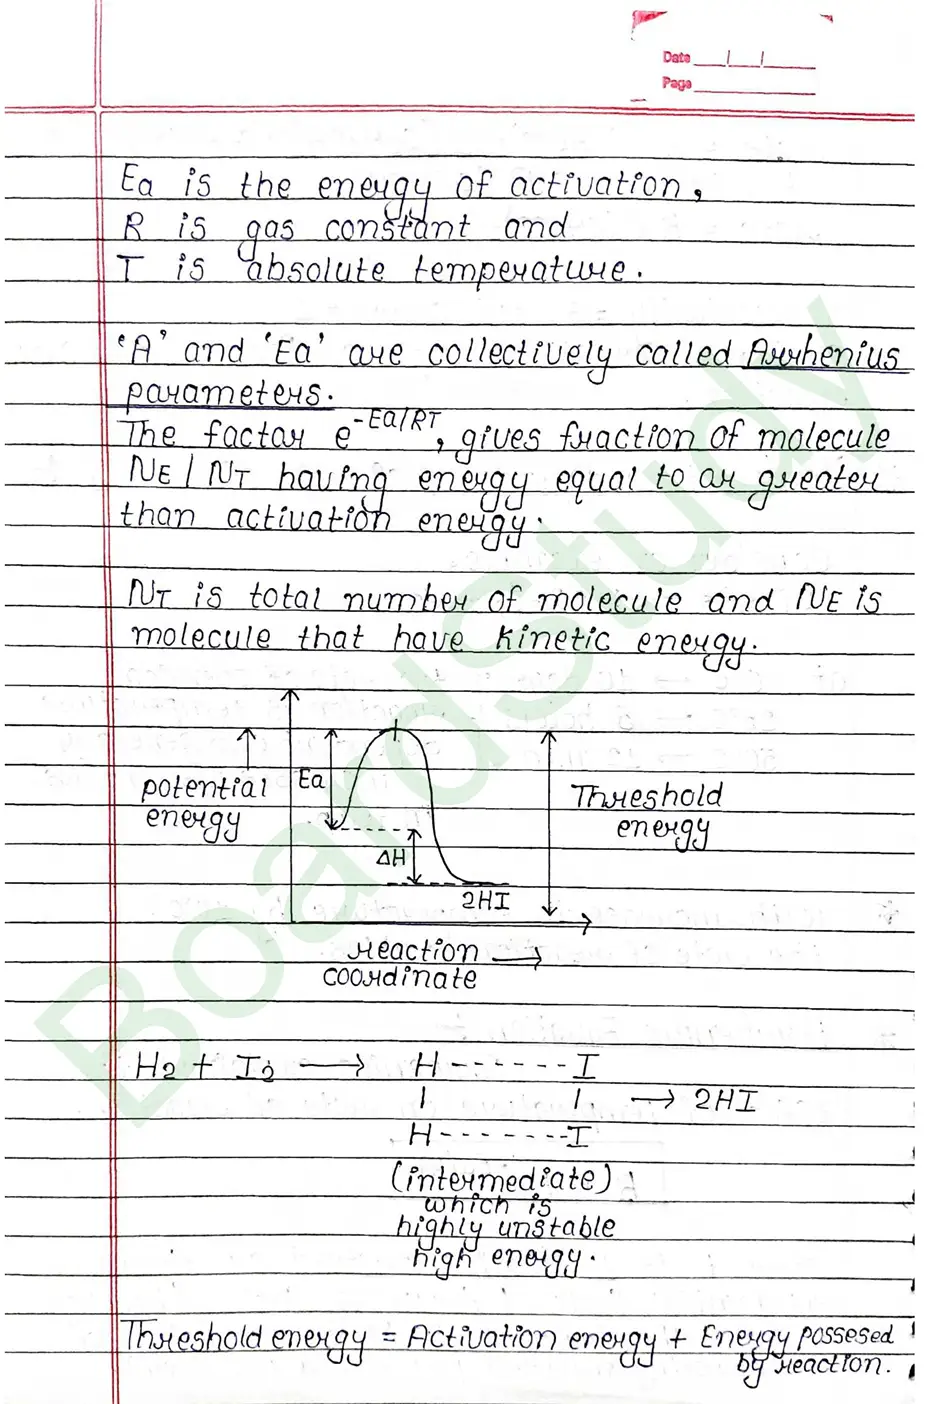 Date __/__/__
Page
Ea is the energy of activation,
R is gas constant and
T is absolute temperature.
'A' and 'Ea' are collectively called Arrhenius
parameters.
The factor e^-Ea/RT, gives fraction of molecule
NE / NT having energy equal to or greater
than activation energy.
NT is total number of molecule and NE is
molecule that have kinetic energy.
potential
energy
Ea
ΔH
2HI
Threshold
energy
reaction →
coordinate
H2 + I2 → H------I
| | → 2HI
H-------I
(intermediate)
which is
highly unstable
high energy.
Threshold energy = Activation energy + Energy possesed
by reaction.
BoardStudy